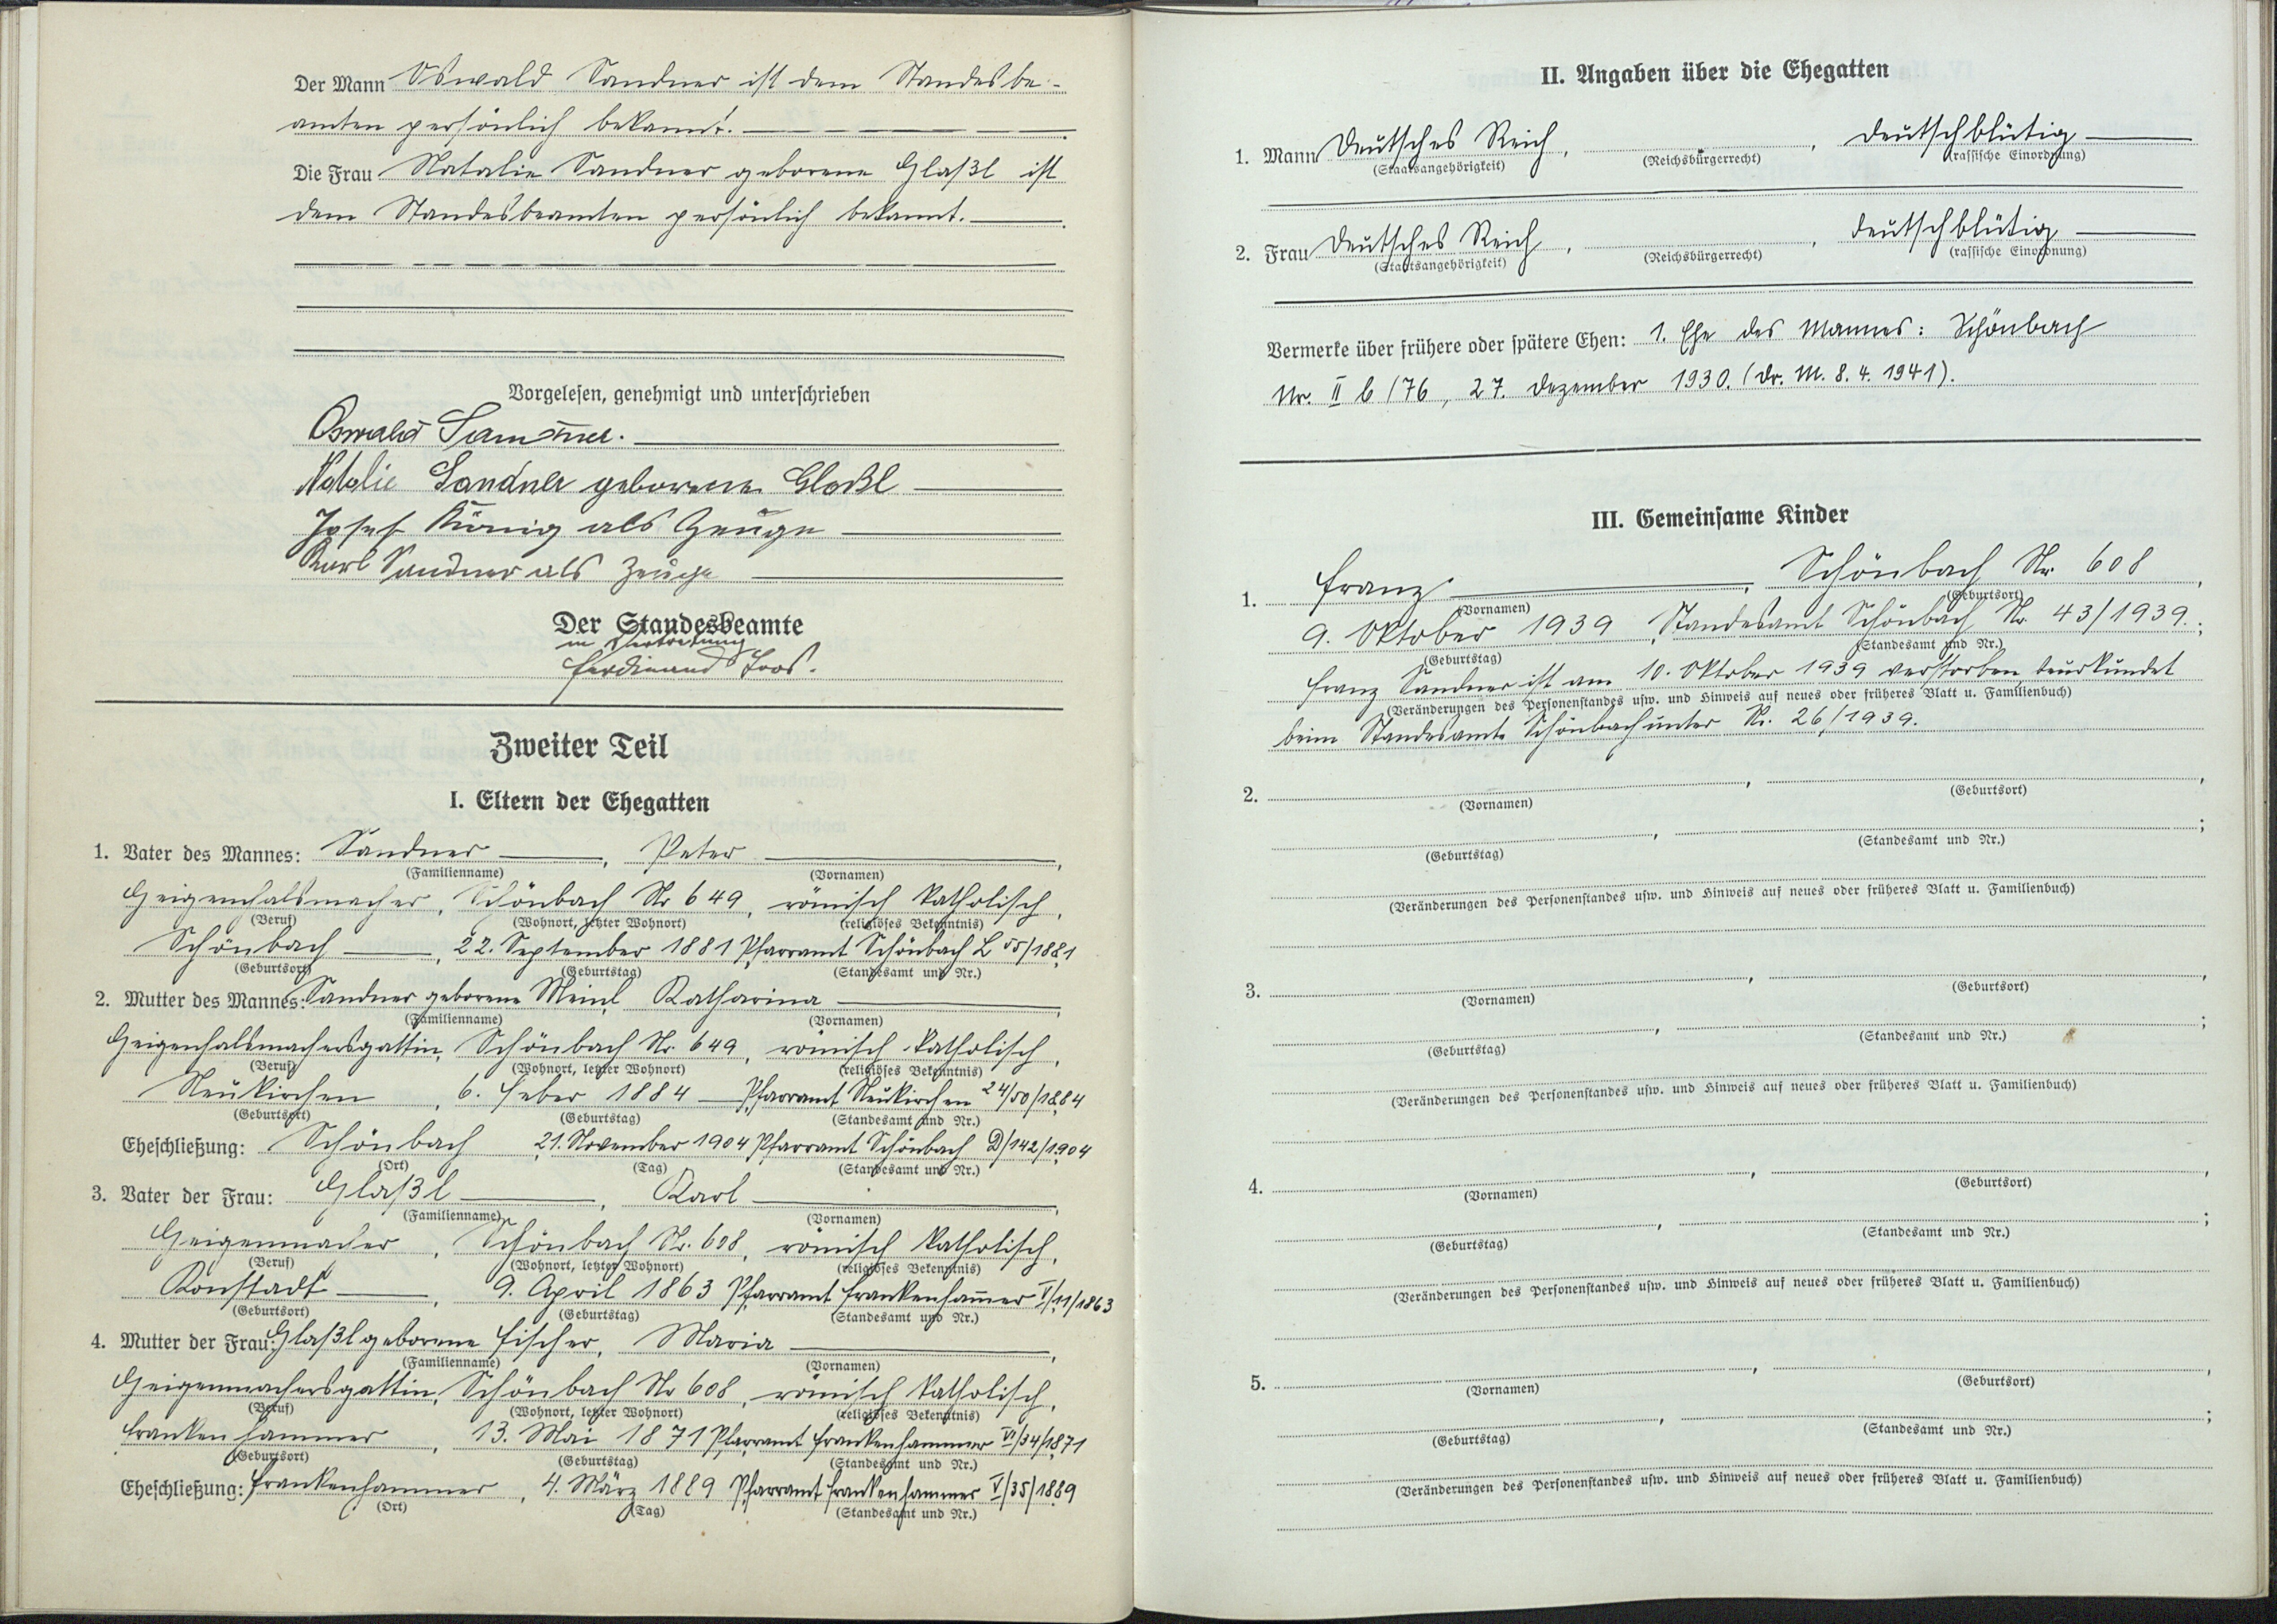 Der Mann Oswald Sandner ist dem Standesbe-
amten persönlich bekannt.
Die Frau Natalie Sandner geborene Glaßl ist
dem Standesbeamten persönlich bekannt.
Vorgelesen, genehmigt und unterschrieben
Oswald Sandner.
Natalie Sandner geborene Glaßl
Josef König als Zeuge
Karl Sandner als Zeuge
Der Standesbeamte
in Vertretung
Ferdinand Loos.
Zweiter Teil
I. Eltern der Ehegatten
1. Vater des Mannes: Sandner, Peter,
(Familienname) (Vornamen)
Geigenhalsmacher, Schönbach Nr 649, römisch katholisch,
(Beruf) (Wohnort, letzter Wohnort) (religiöses Bekenntnis)
Schönbach, 22. September 1881 Pfarramt Schönbach L 55/1881
(Geburtsort) (Geburtstag) (Standesamt und Nr.)
2. Mutter des Mannes: Sandner geborene Meinl, Katharina,
(Familienname) (Vornamen)
Geigenhalsmachersgattin, Schönbach Nr. 649, römisch katholisch,
(Beruf) (Wohnort, letzter Wohnort) (religiöses Bekenntnis)
Neukirchen, 6. Feber 1884 Pfarramt Neukirchen 24/50/1884
(Geburtsort) (Geburtstag) (Standesamt und Nr.)
Eheschließung: Schönbach, 21. November 1904 Pfarramt Schönbach D/142/1904
(Ort) (Tag) (Standesamt und Nr.)
3. Vater der Frau: Glaßl, Karl,
(Familienname) (Vornamen)
Geigenmacher, Schönbach Nr. 608, römisch katholisch,
(Beruf) (Wohnort, letzter Wohnort) (religiöses Bekenntnis)
Konstadt, 9. April 1863 Pfarramt Frankenham̄er V/11/1863
(Geburtsort) (Geburtstag) (Standesamt und Nr.)
4. Mutter der Frau: Glaßl geborene Fischer, Maria,
(Familienname) (Vornamen)
Geigenmachersgattin, Schönbach Nr 608, römisch katholisch,
(Beruf) (Wohnort, letzter Wohnort) (religiöses Bekenntnis)
Frankenhammer, 13. Mai 1871 Pfarramt Frankenhammer VI/34/1871
(Geburtsort) (Geburtstag) (Standesamt und Nr.)
Eheschließung: Frankenhammer, 4. März 1889 Pfarramt Frankenhammer V/35/1889
(Ort) (Tag) (Standesamt und Nr.)
II. Angaben über die Ehegatten
1. Mann Deutsches Reich, , deutschblütig
(Staatsangehörigkeit) (Reichsbürgerrecht) (rassische Einordnung)
2. Frau Deutsches Reich, , deutschblütig
(Staatsangehörigkeit) (Reichsbürgerrecht) (rassische Einordnung)
Vermerke über frühere oder spätere Ehen: 1. Ehe des Mannes: Schönbach
Nr. II b/76, 27. Dezember 1930. (Dr. M. 8. 4. 1941).
III. Gemeinsame Kinder
1. Franz, Schönbach Nr. 608,
(Vornamen) (Geburtsort)
9. Oktober 1939, Standesamt Schönbach Nr. 43/1939.;
(Geburtstag) (Standesamt und Nr.)
Franz Sandner ist am 10. Oktober 1939 verstorben beurkundet
(Veränderungen des Personenstandes usw. und Hinweis auf neues oder früheres Blatt u. Familienbuch)
beim Standesamte Schönbach unter Nr. 26/1939.
2. , ,
(Vornamen) (Geburtsort)
, ;
(Geburtstag) (Standesamt und Nr.)
(Veränderungen des Personenstandes usw. und Hinweis auf neues oder früheres Blatt u. Familienbuch)
3. , ,
(Vornamen) (Geburtsort)
, ;
(Geburtstag) (Standesamt und Nr.)
(Veränderungen des Personenstandes usw. und Hinweis auf neues oder früheres Blatt u. Familienbuch)
4. , ,
(Vornamen) (Geburtsort)
, ;
(Geburtstag) (Standesamt und Nr.)
(Veränderungen des Personenstandes usw. und Hinweis auf neues oder früheres Blatt u. Familienbuch)
5. , ,
(Vornamen) (Geburtsort)
, ;
(Geburtstag) (Standesamt und Nr.)
(Veränderungen des Personenstandes usw. und Hinweis auf neues oder früheres Blatt u. Familienbuch)